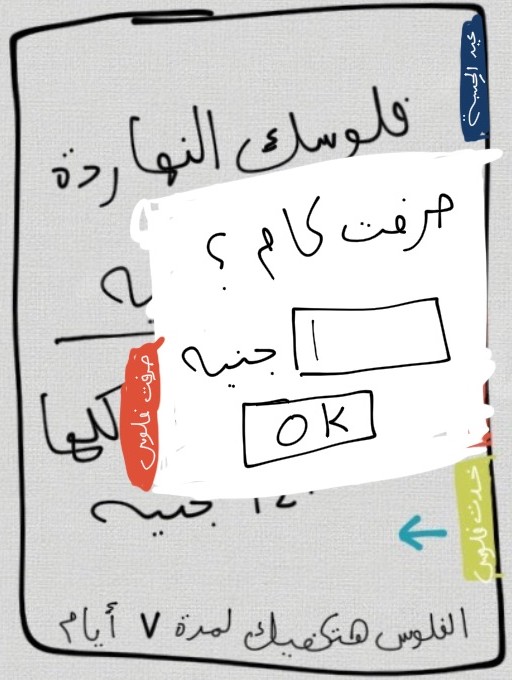 فلوسك النهاردة
صرفت كام ؟
جنيه
OK
صرفت فلوس
كلها
جنيه
خدت فلوس
الفلوس هتكفيك لمدة ٧ أيام